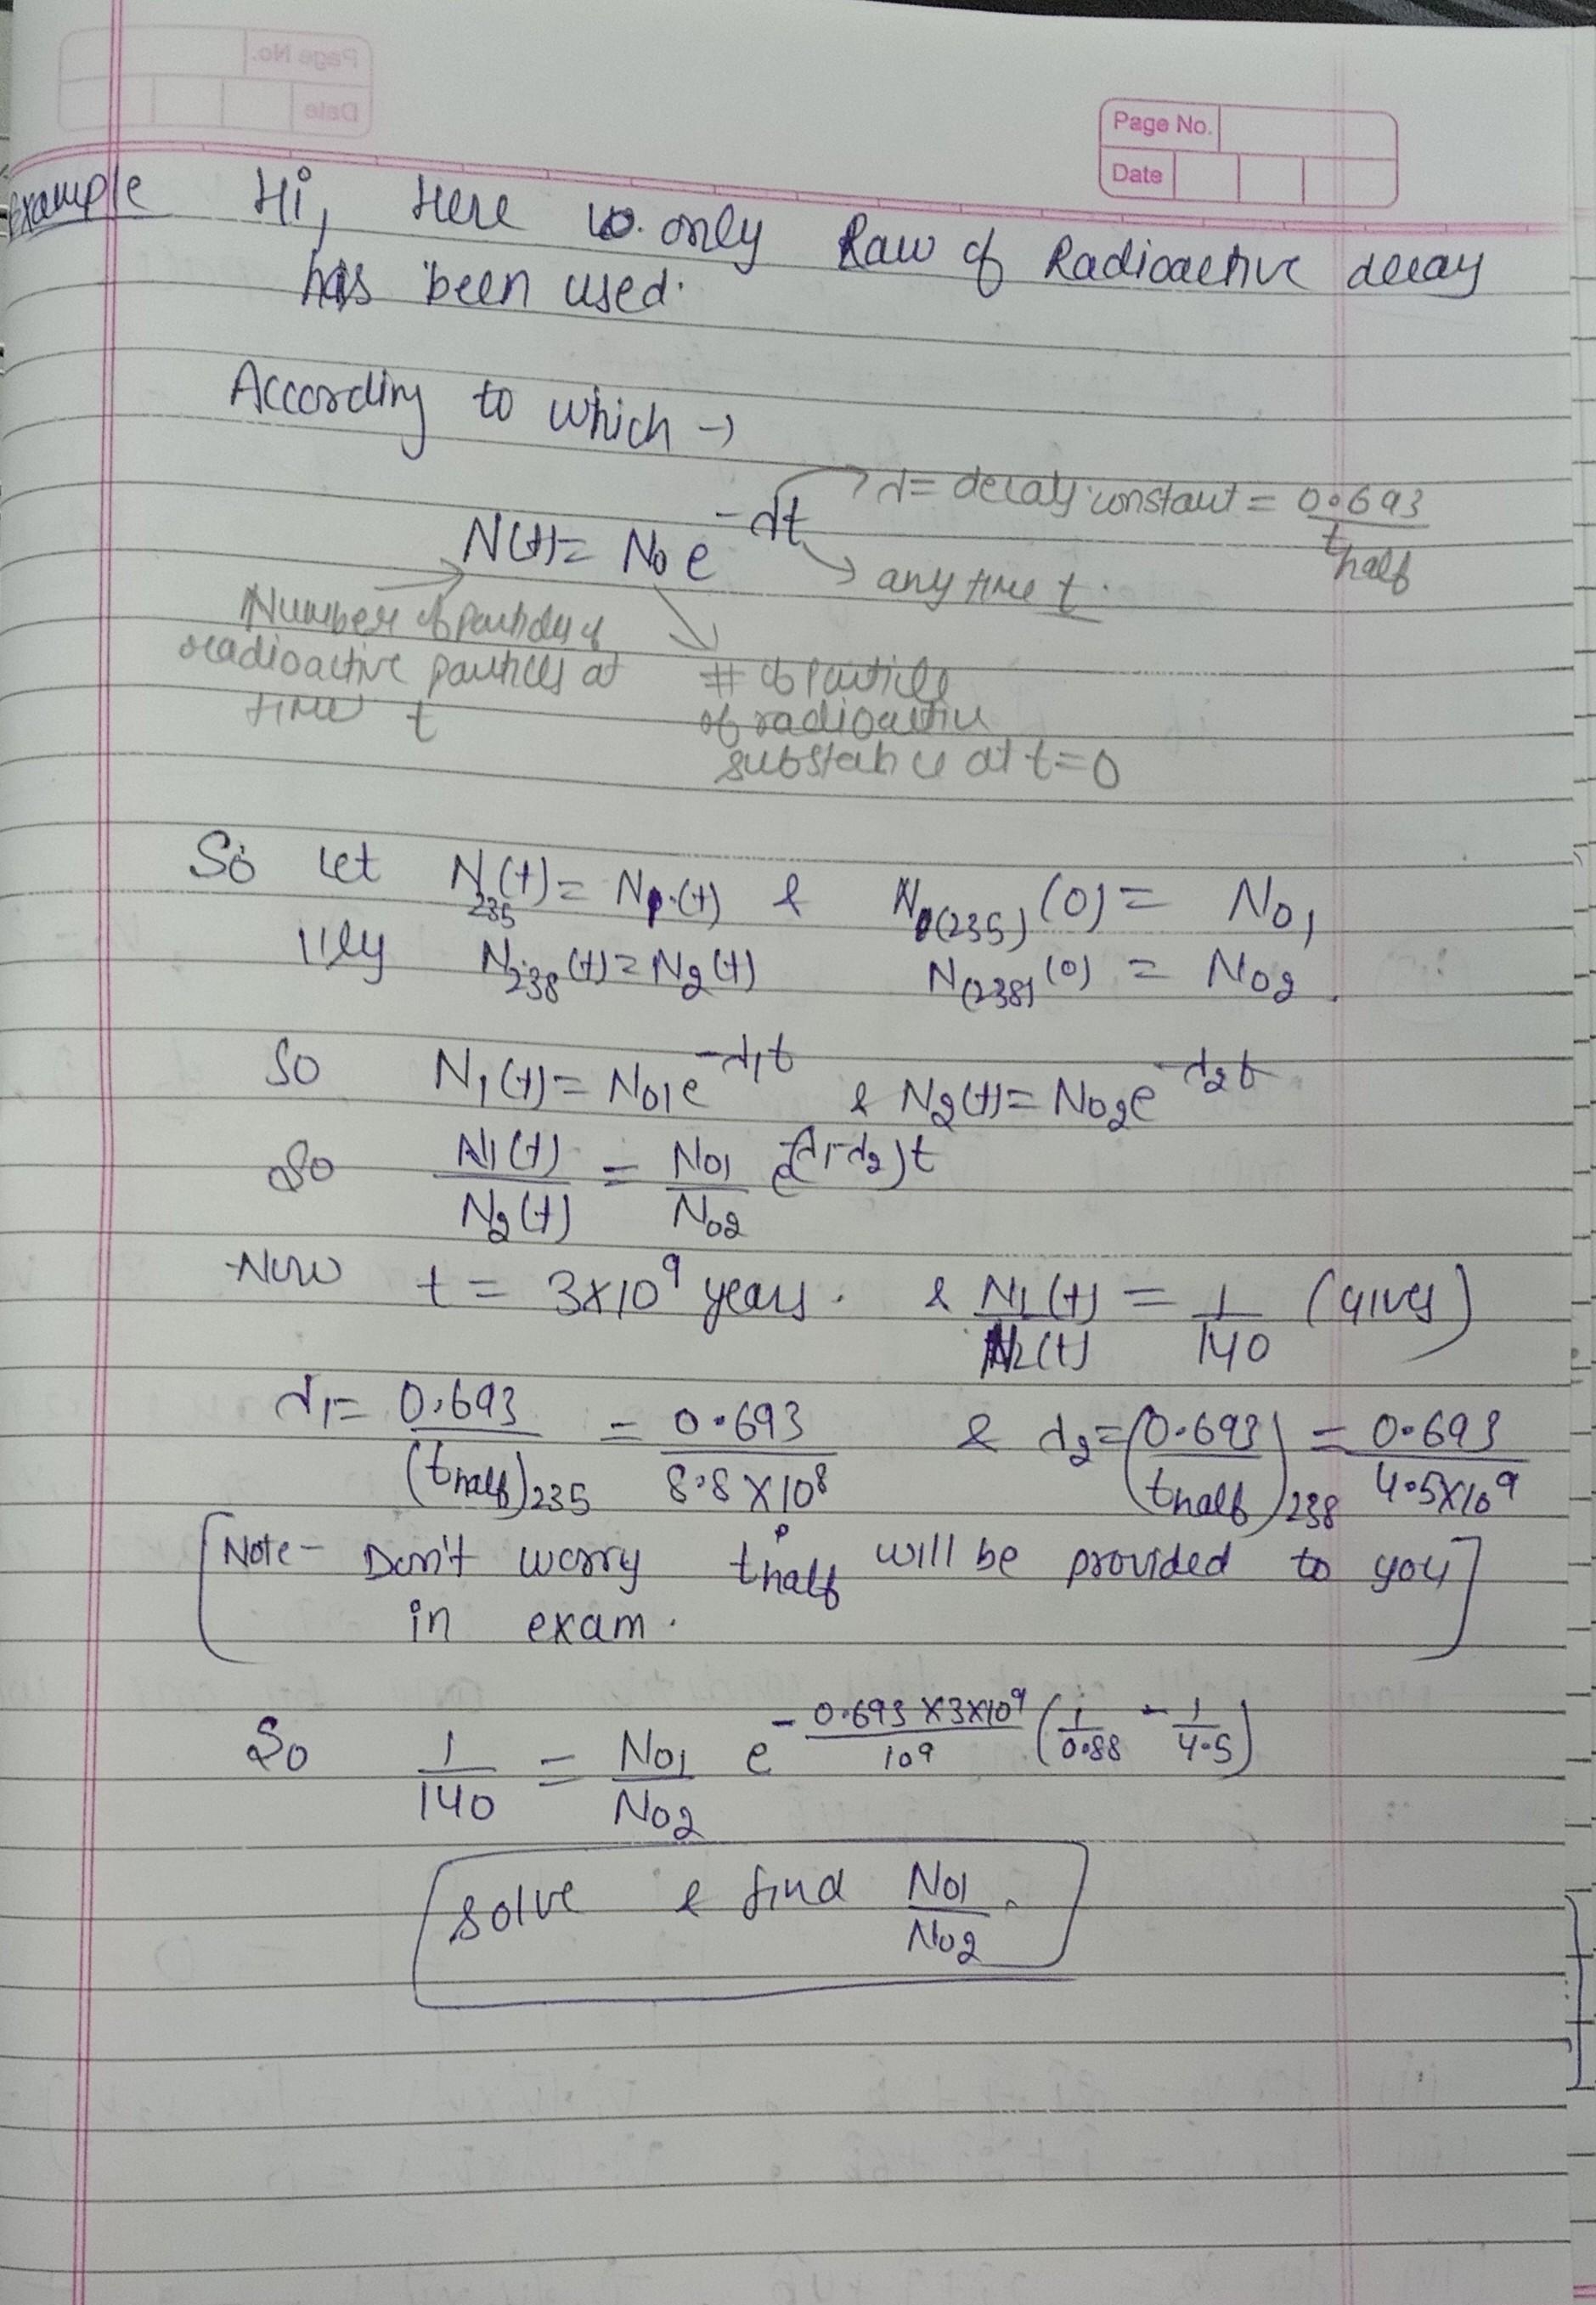 Page No.
Date
Page No.
Date
Example Hi, Here is only Law of Radioactive decay
has been used.
According to which →
N(t) = N₀ e^-λt
λ = decay constant = 0.693 / t half
any time t.
Number of particles of
radioactive particles at
time t
# of particle
of radioactive
substance at t=0
So let N₂₃₅(t) = N₁(t) & N₀(235)(0) = N₀₁
llly N₂₃₈(t) = N₂(t) N(238)(0) = N₀₂.
So N₁(t) = N₀₁e^-λ₁t & N₂(t) = N₀₂e^-λ₂t
So N₁(t) / N₂(t) = N₀₁ / N₀₂ e^-(λ₁-λ₂)t
Now t = 3×10⁹ years. & N₁(t) / N₂(t) = 1 / 140 (given)
λ₁ = 0.693 / (t half)₂₃₅ = 0.693 / 8.8×10⁸ & λ₂ = (0.693 / t half)₂₃₈ = 0.693 / 4.5×10⁹
[Note - Don't worry t half will be provided to you
in exam.]
So 1 / 140 = N₀₁ / N₀₂ e^-0.693×3×10⁹ / 10⁹ (1 / 0.88 - 1 / 4.5)
Solve & find N₀₁ / N₀₂.